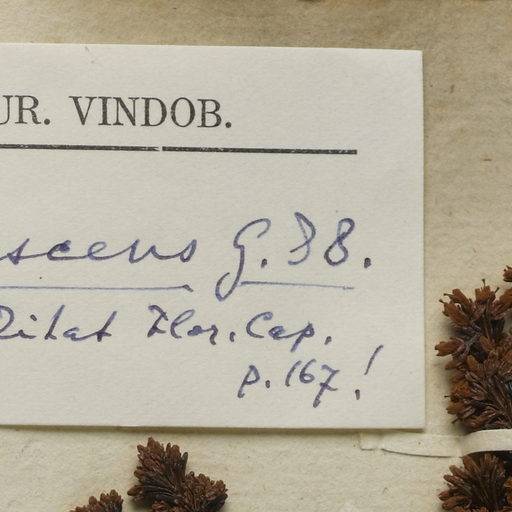 UR. VINDOB.
scens G. 38.
Zitat Flor. Cap.
p. 167!